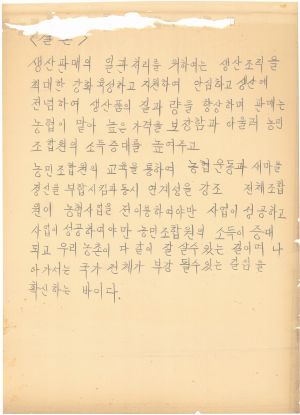 <결론>
생산판매의 일관처리를 위하여는 생산조직을
최대한 강화 육성하고 지원하여 안심하고 생산에
전념하여 생산품의 질과 량을 향상하며 판매는
농협이 맡아 높은 가격을 보장함과 아울러 농민
조합원의 소득증대를 높여주고
농민조합원의 교육을 통하여 농협운동과 새마을
정신을 부합시킴과 동시 연계성을 강조 전체 조합
원이 농협사업을 전이용하여야만 사업이 성공하고
사업이 성공하여야만 농민조합원의 소득이 증대
되고 우리 농촌이 다 같이 잘 살수 있는 길이며 나
아가서는 국가 전체가 부강 될수있는 길임을
확신하는 바이다.